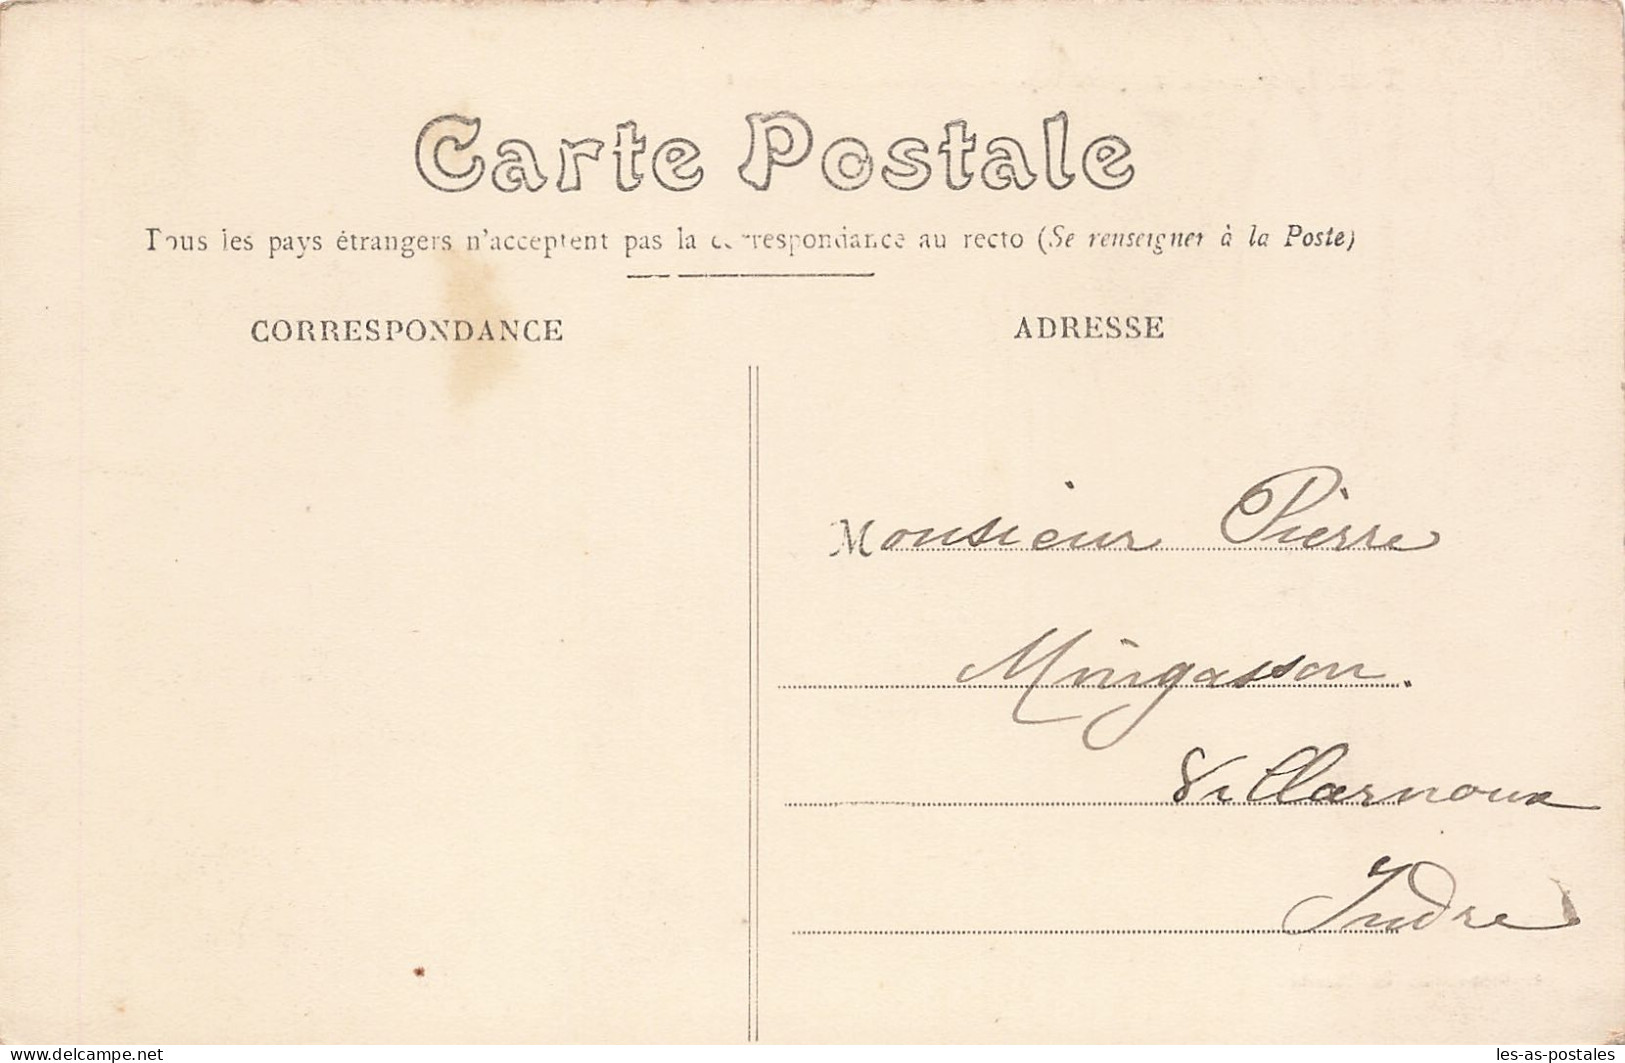 Carte Postale
Tous les pays étrangers n'acceptent pas la correspondance au recto (Se renseigner à la Poste)
CORRESPONDANCE
ADRESSE
Monsieur Pierre
Mingasson.
Villarnoux
Indre
delcampe.net
les-as-postales